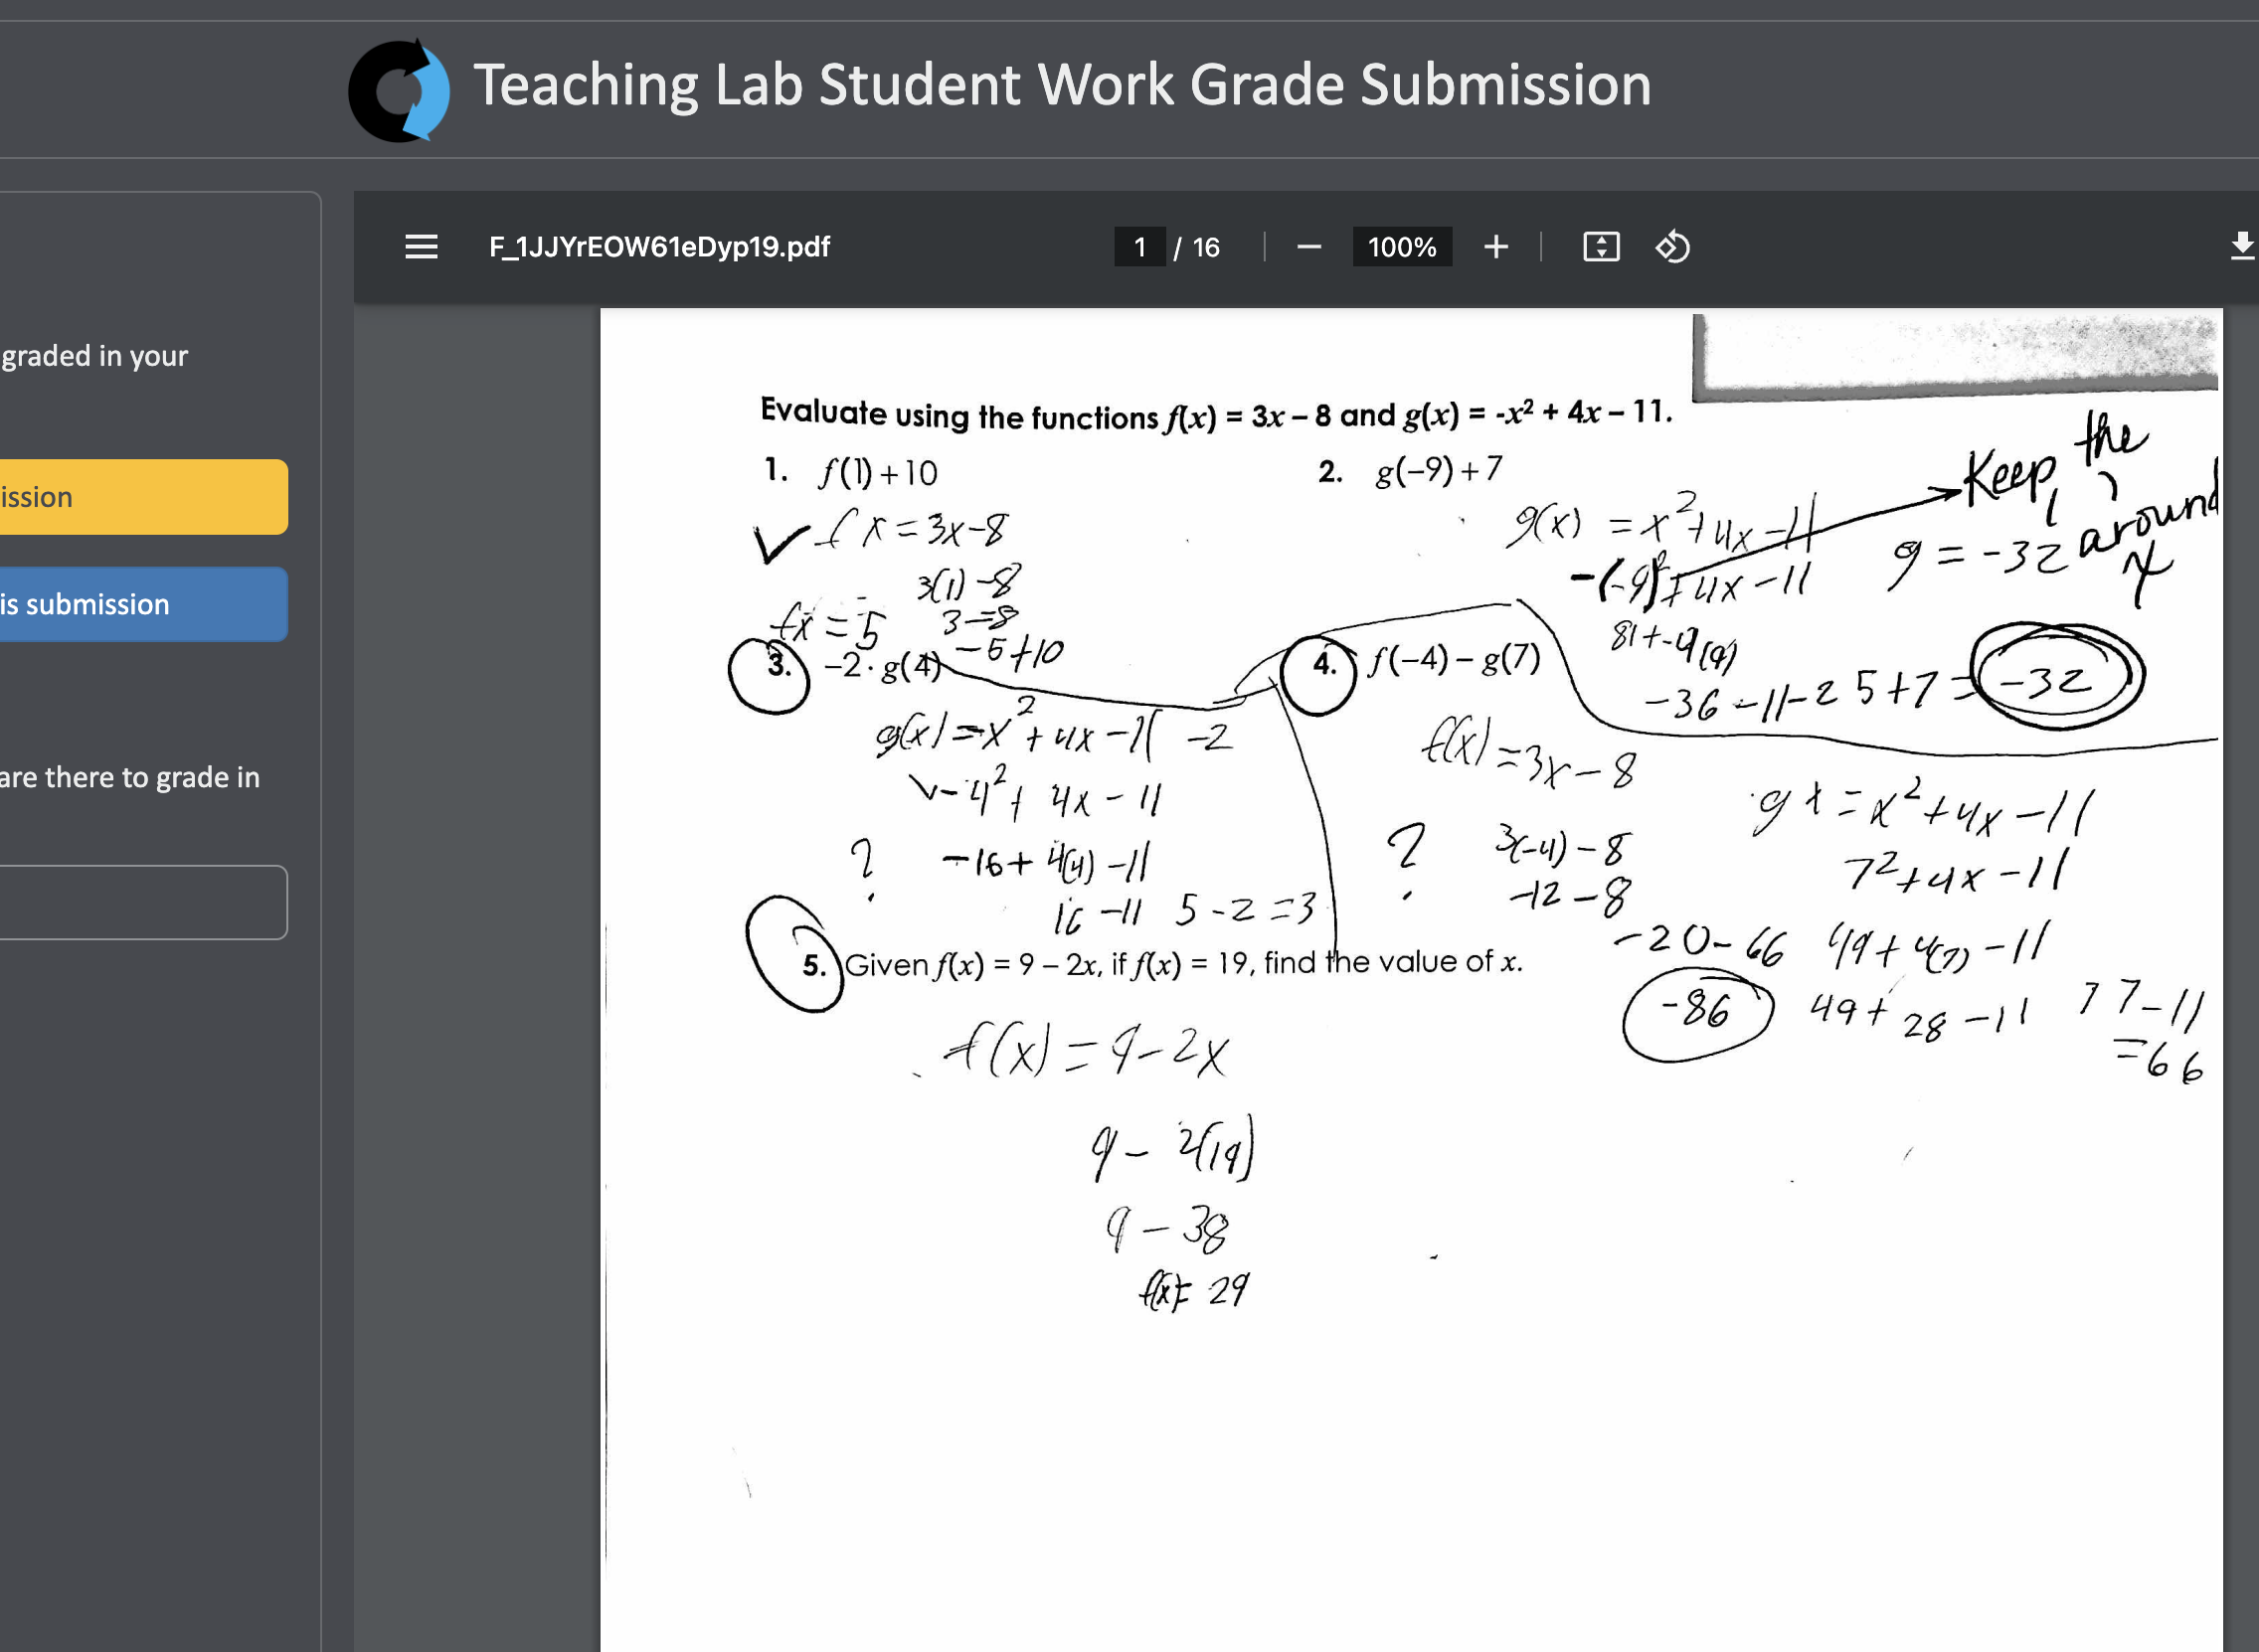 Teaching Lab Student Work Grade Submission
F_1JJYrEOW61eDyp19.pdf
1 / 16
100%
graded in your
ission
is submission
are there to grade in
Evaluate using the functions f(x) = 3x – 8 and g(x) = -x² + 4x – 11.
1. f(1)+10
fx = 3x-8
3(1) -8
3-=8
fx = 5
-5+10
2. g(-9)+7
g(x) = x²+4x-11
-(-9)²+4x-11
81+-4(9)
-36-11-25+7=-32
g = -32
Keep the
( )
around
x
3. -2·g(4)
g(x)=-x²+4x-11 -2
-4²+ 4x-11
? -16+ 4(4) -11
16-11 5-2=3
4. f(-4)–g(7)
f(x)=3x-8
? 3(-4)-8
-12-8
-20-66
-86
gx=x²+4x-11
7²+4x-11
49+4(7)-11
49+28-11
77-11
=66
5. Given f(x) = 9 – 2x, if f(x) = 19, find the value of x.
f(x)=9-2x
9-2(19)
9-38
f(x)= 29